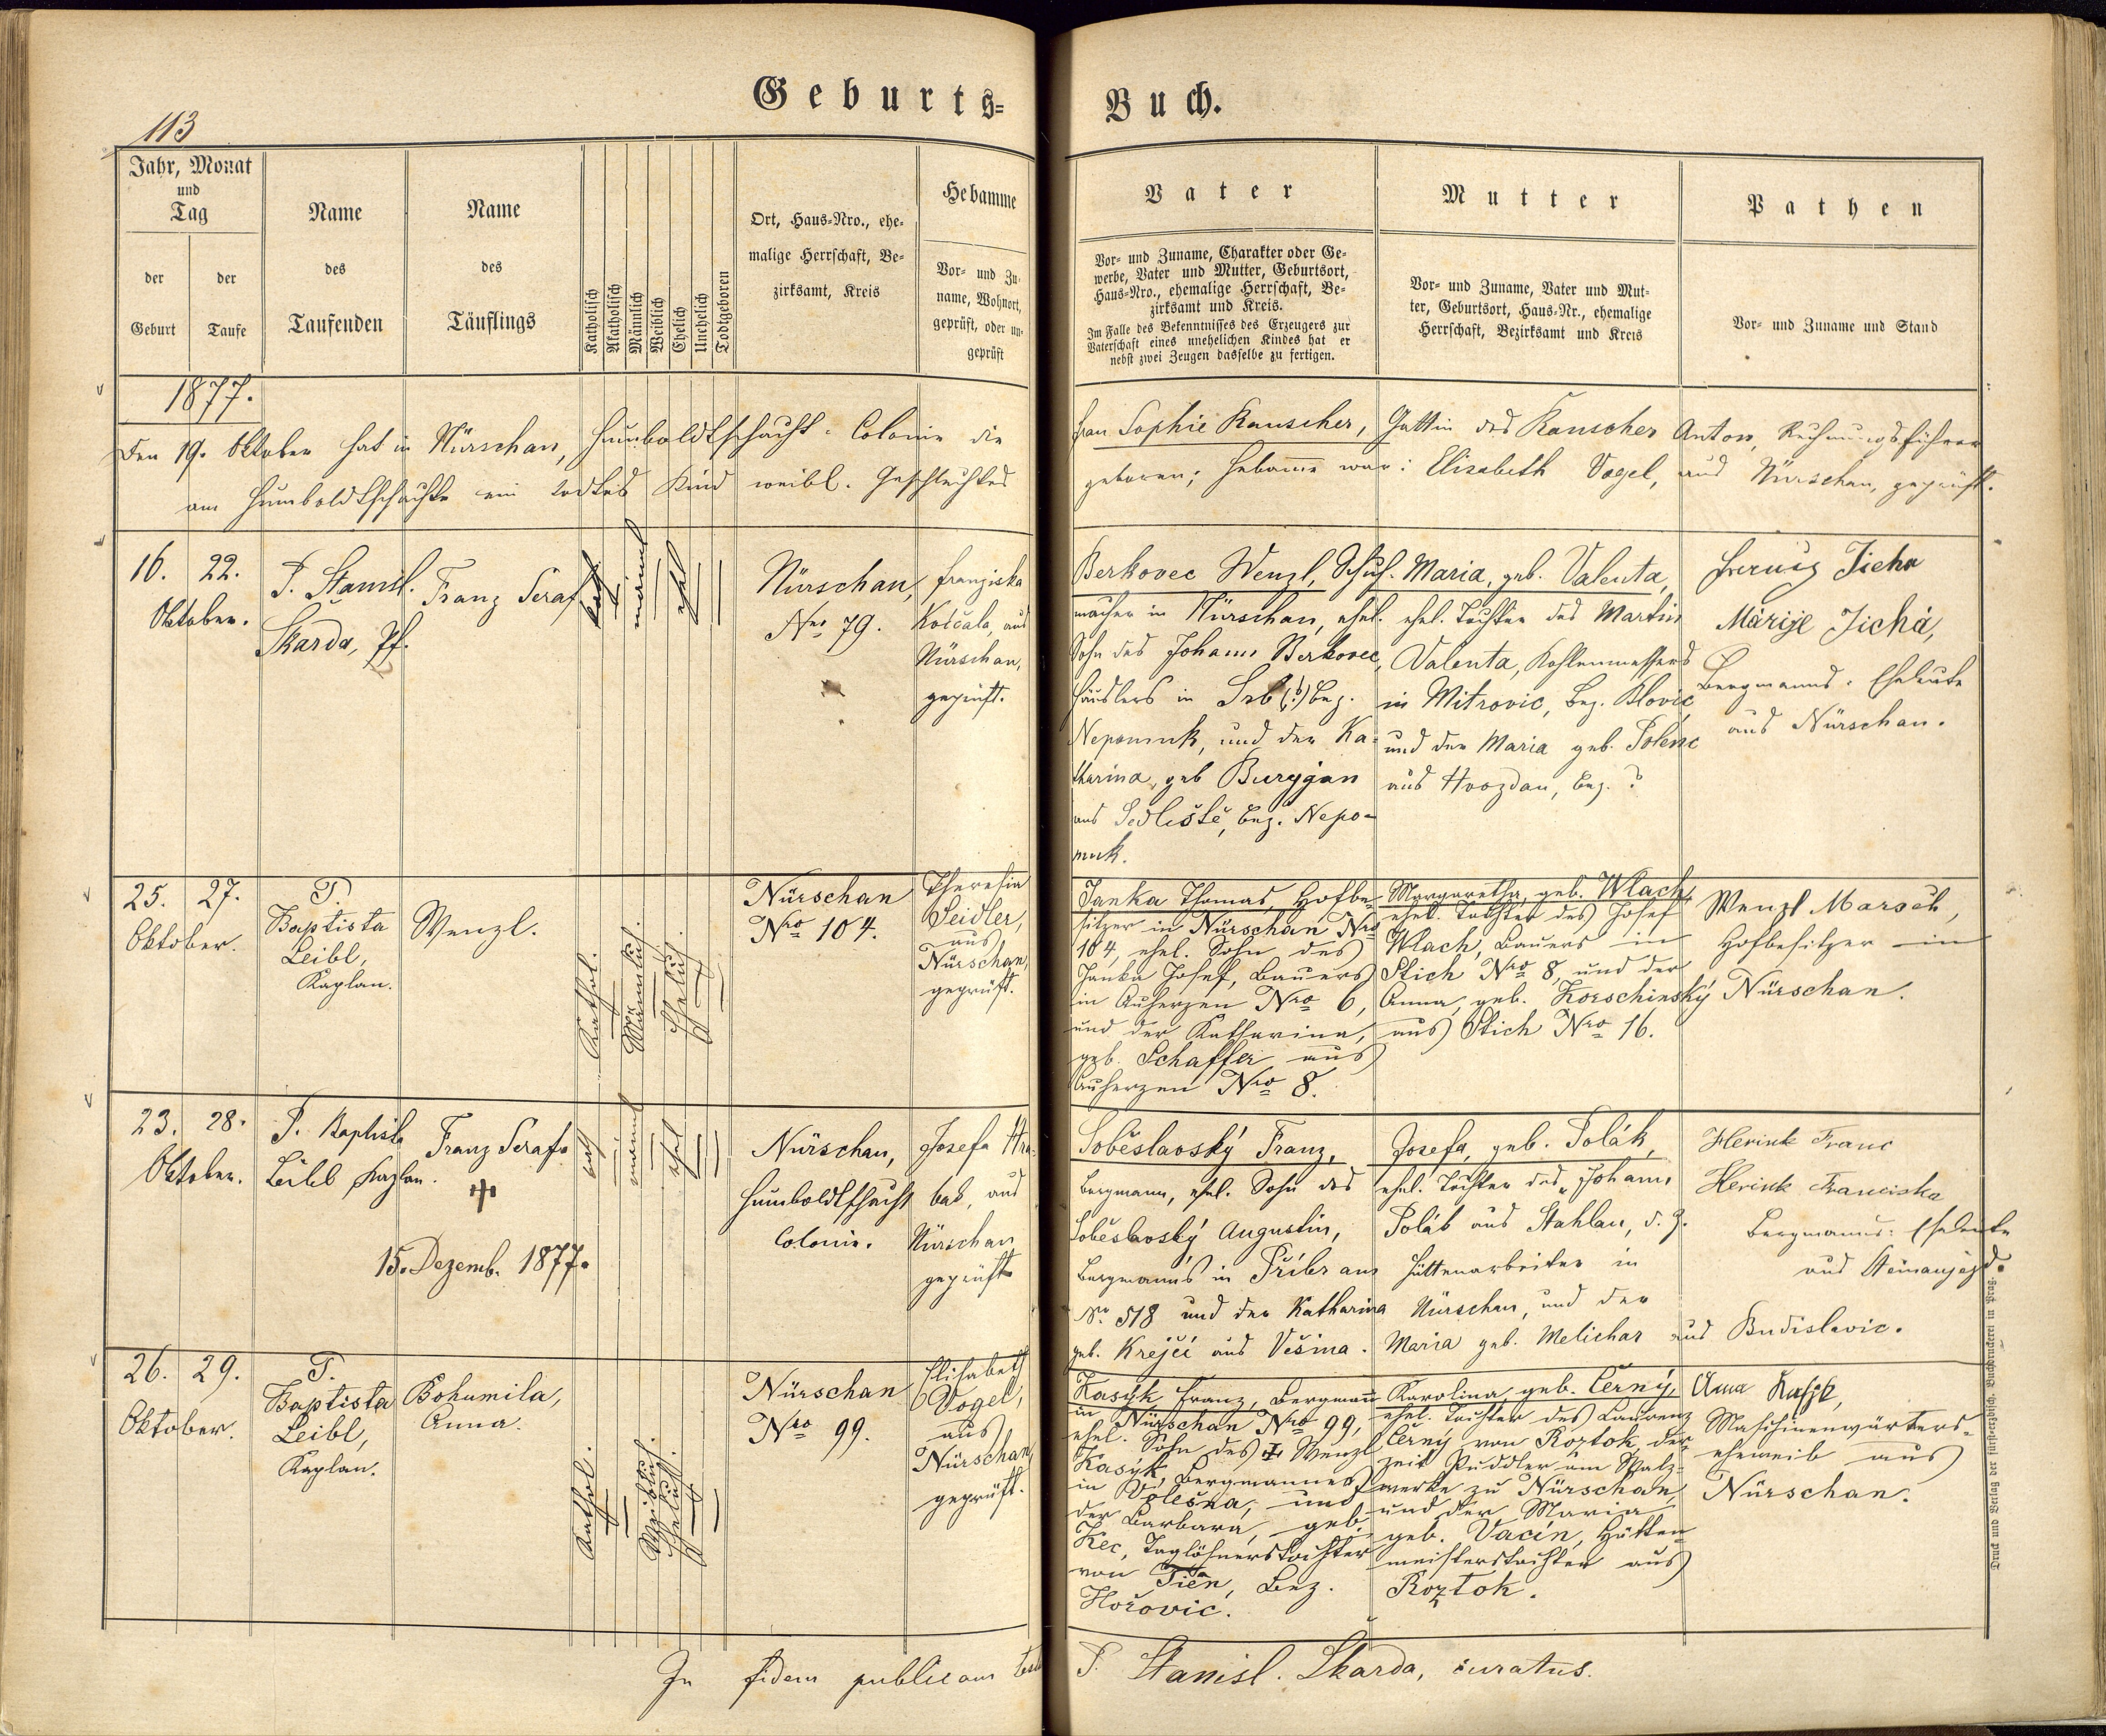 Geburts-Buch.
113
Jahr, Monat
und
Tag
der
Geburt
der
Taufe
Name
des
Taufenden
Name
des
Täuflings
Katholisch
Akatholisch
Männlich
Weiblich
Ehelich
Unehelich
Todtgeboren
Ort, Haus-Nro., ehe-
malige Herrschaft, Be-
zirksamt, Kreis
Hebamme
Vor- und Zu-
name, Wohnort,
geprüft, oder un-
geprüft
Vater
Vor- und Zuname, Charakter oder Ge-
werbe, Vater und Mutter, Geburtsort,
Haus-Nro., ehemalige Herrschaft, Be-
zirksamt und Kreis.
Im Falle des Bekenntnisses des Erzeugers zur
Vaterschaft eines unehelichen Kindes hat er
nebst zwei Zeugen dasselbe zu fertigen.
Mutter
Vor- und Zuname, Vater und Mut-
ter, Geburtsort, Haus-Nr., ehemalige
Herrschaft, Bezirksamt und Kreis
Pathen
Vor- und Zuname und Stand
1877.
Den 19. Oktober hat in Nürschan, Humboldtschacht-Colonie die Frau Sophie Rauscher, Gattin des Rauscher Anton, Rechnungsführer
am Humboldtschachte ein todtes Kind weibl. Geschlechtes geboren; Hebamme war: Elisabeth Vogel, aus Nürschan, geprüft.
16. 22.
Oktober.
P. Stanisl.
Skarda, Pf.
Franz Seraf
kath
männl
ehel
Nürschan,
Nro 79.
Franziska
Kočcala, aus
Nürschan,
geprüft.
Berkovec Wenzl, Schuh-
macher in Nürschan, ehel.
Sohn des Johann Berkovec,
Häuslers in Srb (?) Bez.
Nepomuk, und der Ka-
tharina, geb Buryjan
aus Sedlište, Bez. Nepo-
muk.
Maria, geb. Valenta,
ehel. Tochter des Martin
Valenta, Kohlenmessers
in Mitrovic, Bez. Blovic
und der Maria geb. Polenc
aus Hvozdan, Bez. ?
Jicha
Márije Jichá,
Bergmanns-Eheleute
aus Nürschan.
25. 27.
Oktober.
P.
Baptista
Leibl,
Kaplan.
Wenzl.
Kathol.
Männlich.
Ehelich.
Nürschan
Nro 104.
Theresia
Seidler,
aus
Nürschan,
geprüft.
Janka Thomas, Hofbe-
sitzer in Nürschan Nro
104, ehel. Sohn des
Janka Josef, Bauers
in Auherzen Nro 6,
und der Katharina,
geb. Schaffer aus
Auherzen Nro 8.
Margaretha, geb. Wlach,
ehel. Tochter des Josef
Wlach, Bauers in
Stich Nro 8, und der
Anna, geb. Korschinský
aus Stich Nro 16.
Wenzl Marsch,
Hofbesitzer in
Nürschan.
23. 28.
Oktober.
P. Baptista
Leibl Kaplan.
Franz Seraf.
15. Dezemb. 1877.
kath
männl
ehel
Nürschan,
Humboldtschacht
Colonie.
Josefa Hra-
bak, aus
Nürschan
geprüft
Soběslavský Franz,
Bergmann, ehel. Sohn des
Soběslavský Augustin,
Bergmanns in Přibram
Nr. 518 und der Katharina
geb. Krejčí aus Vešina.
Josefa, geb. Polák,
ehel. Tochter des Johann
Polák aus Stahlau, d. Z.
Hüttenarbeiter in
Nürschan, und der
Maria geb. Melichar aus Budislavic.
Herink Franc
Herink Franciska
Bergmanns-Eheleute
aus Steinaujezd.
26. 29.
Oktober.
P.
Baptista
Leibl,
Kaplan.
Bohumila,
Anna.
Kathol.
Weiblich.
Ehelich.
Nürschan
Nro 99.
Elisabeth
Vogel,
aus
Nürschan
geprüft.
Kasýk Franz, Bergmann
in Nürschan Nro 99,
ehel. Sohn des Wenzl
Kasýk, Bergmannes
in Volešna, und
der Barbara, geb.
Kec, Taglöhnerstochter
von Tien, Bez.
Hořovic.
Karolina, geb. Černý,
ehel. Tochter des Laurenz
Černý von Roztok, der-
zeit Puddler am Walz-
werke zu Nürschan,
und der Maria
geb. Vacín, Hütten-
meisterstochter aus
Roztok.
Anna
Maschinenwärters-
eheweib aus
Nürschan.
In fidem publicam
P. Stanisl. Skarda, curatus.
Druck und Verlag der fürsterzbisch. Buchdruckerei in Prag.